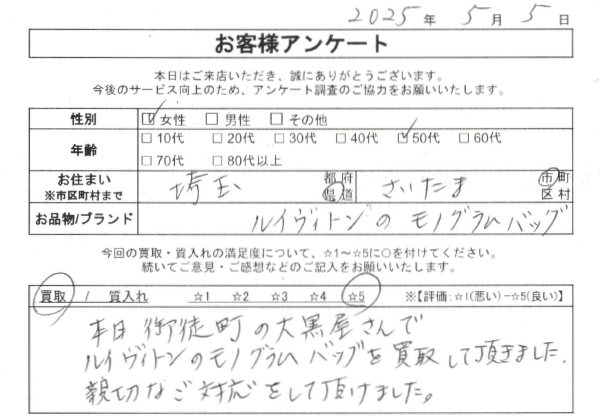 2025年 5月 5日
お客様アンケート
本日はご来店いただき、誠にありがとうございます。
今後のサービス向上のため、アンケート調査のご協力をお願いいたします。
性別 ☑女性 □男性 □その他
年齢 □10代 □20代 □30代 □40代 ☑50代 □60代
□70代 □80代以上
お住まい ※市区町村まで 埼玉 都府県道 さいたま 市町区村
お品物/ブランド ルイヴィトンの モノグラムバッグ
今回の買取・質入れの満足度について、☆1～☆5に○を付けてください。
続いてご意見・ご感想などのご記入をお願いいたします。
買取 / 質入れ ☆1 ☆2 ☆3 ☆4 ☆5 ※【評価:☆1(悪い)－☆5(良い)】
本日 御徒町の大黒屋さんで
ルイヴィトンのモノグラム バッグを買取して頂きました.
親切なご対応をして頂けました。